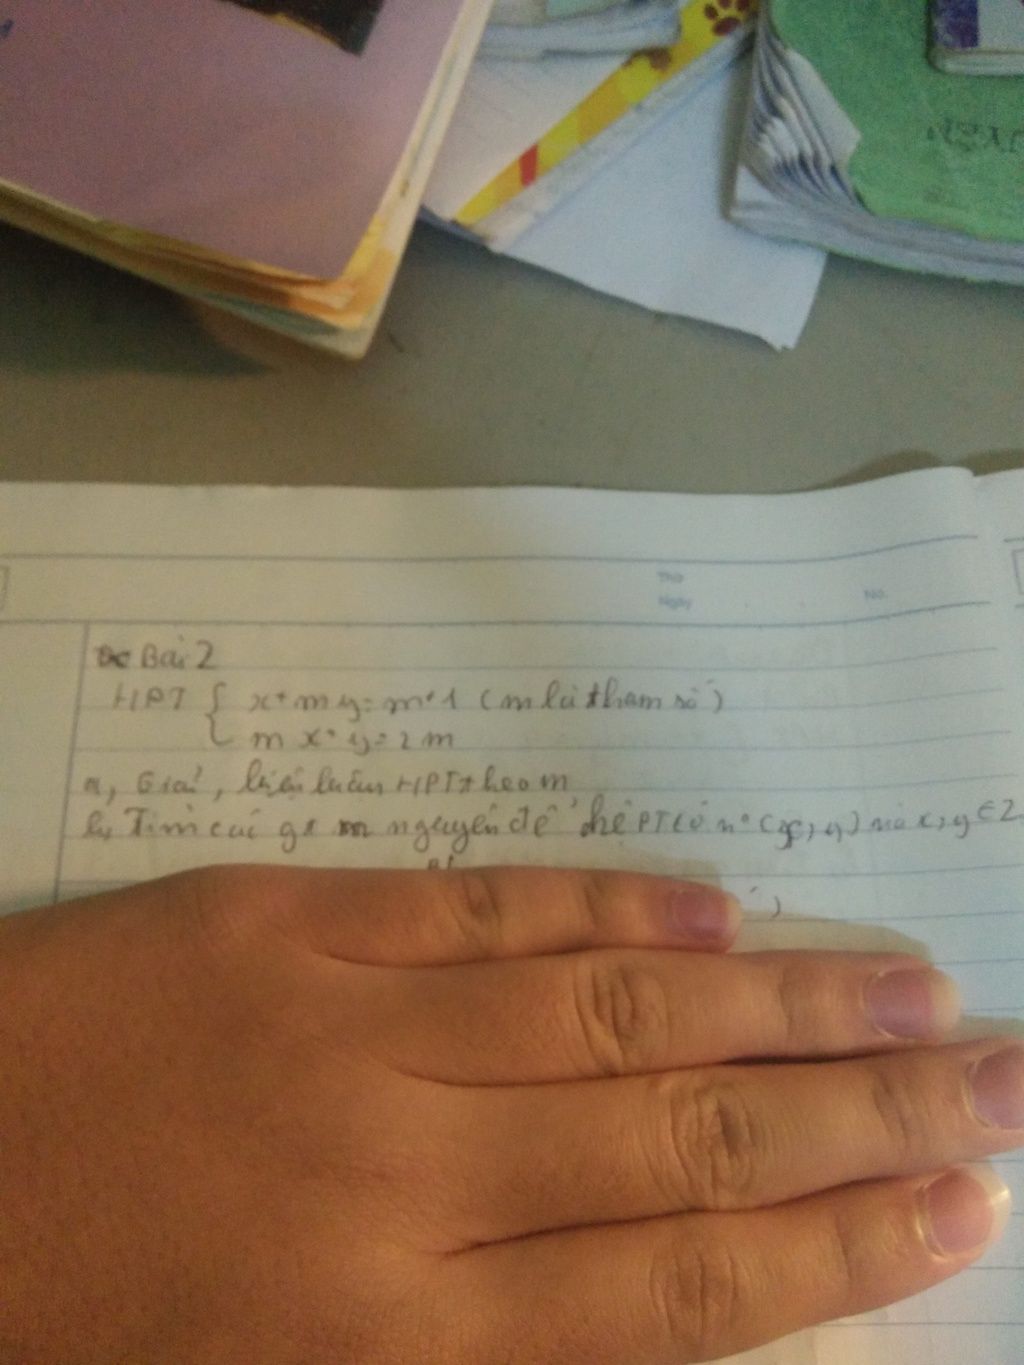 Thứ
Ngày . . No.
Bài 2
HPT { x + my = m + 1 (m là tham số)
m x + y = 2m
a, Giải, biện luận HPT theo m
b, Tìm các gt m nguyên để hệ PT có n° (x, y) mà x, y ∈ Z